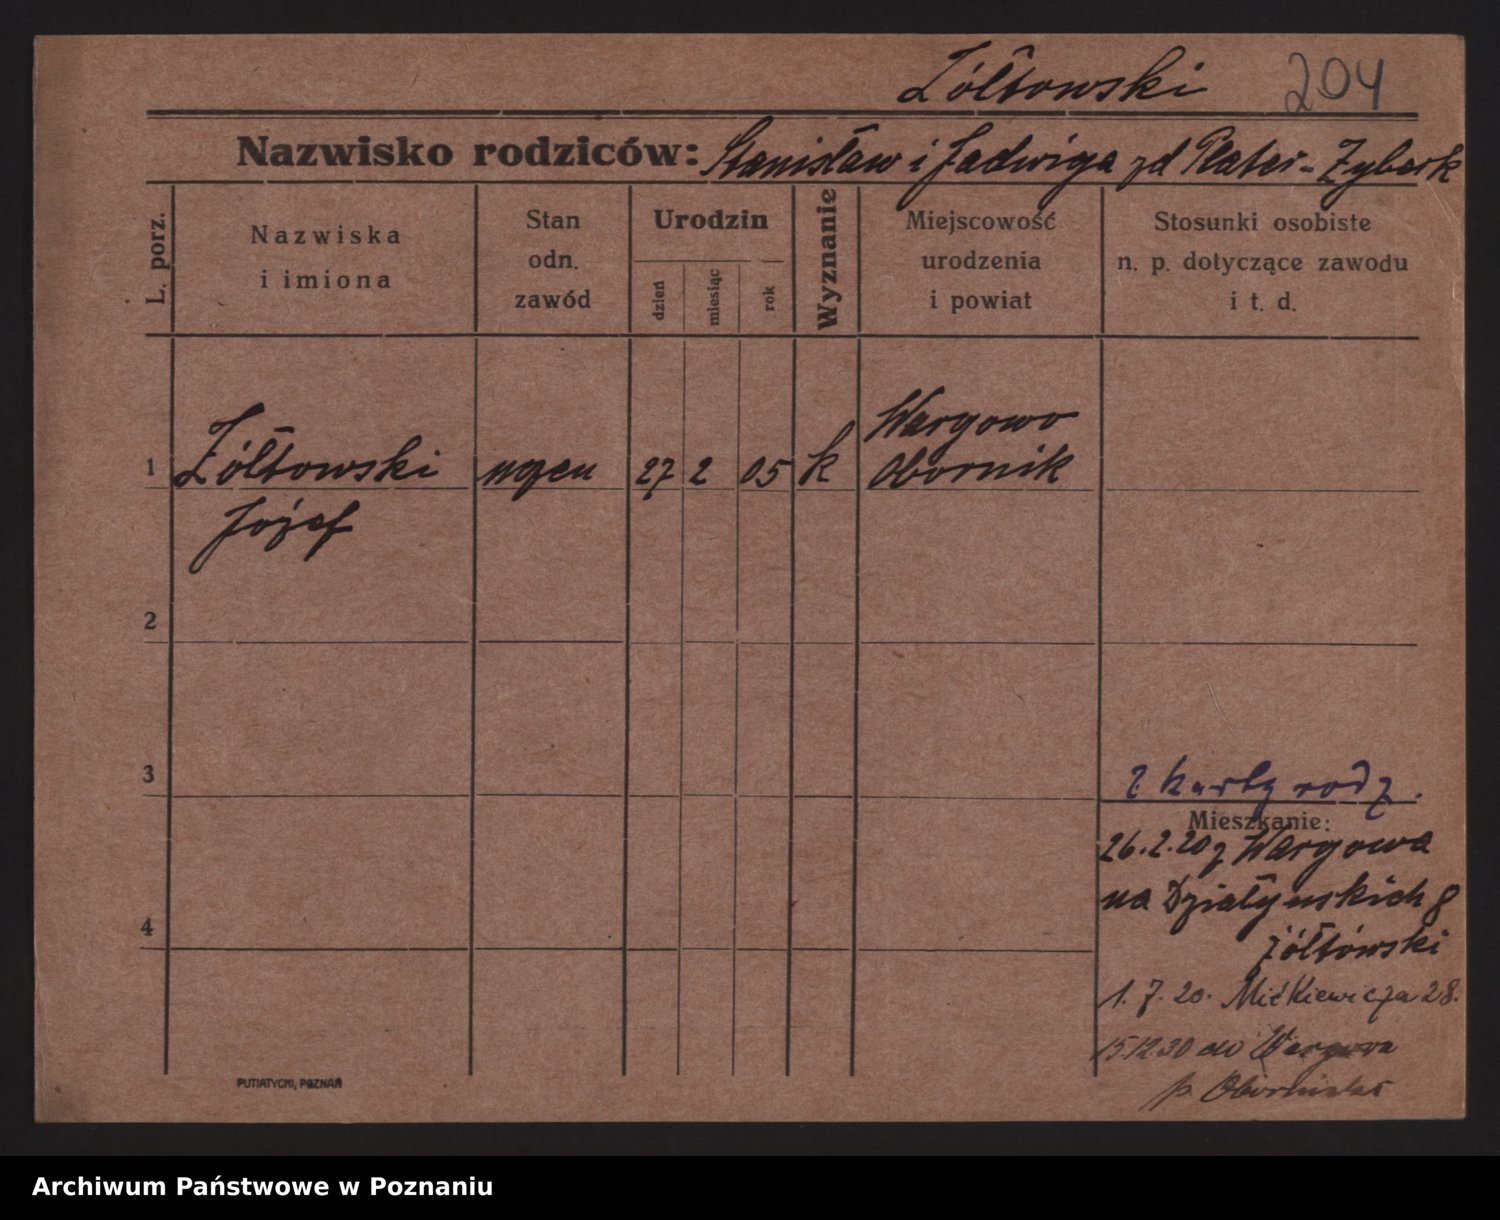 Żółtowski 204
Nazwisko rodziców: Stanisław i Jadwiga zd Plater-Zyberk
L. porz.
Nazwiska
i imiona
Stan
odn.
zawód
Urodzin
dzień
miesiąc
rok
Wyznanie
Miejscowość
urodzenia
i powiat
Stosunki osobiste
n. p. dotyczące zawodu
i t. d.
Wargowo
1 Żółtowski 27 2 05 k Obornik
Józef
2
3
z karty rodz.
Mieszkanie:
26.2.20 z Wargowa
na Działyńskich 8
Żółtowski
4
1.7.20. Mickiewicza 28.
15.12.30 do Wargowa
p. Obornicki
PUTIATYCKI, POZNAŃ
Archiwum Państwowe w Poznaniu